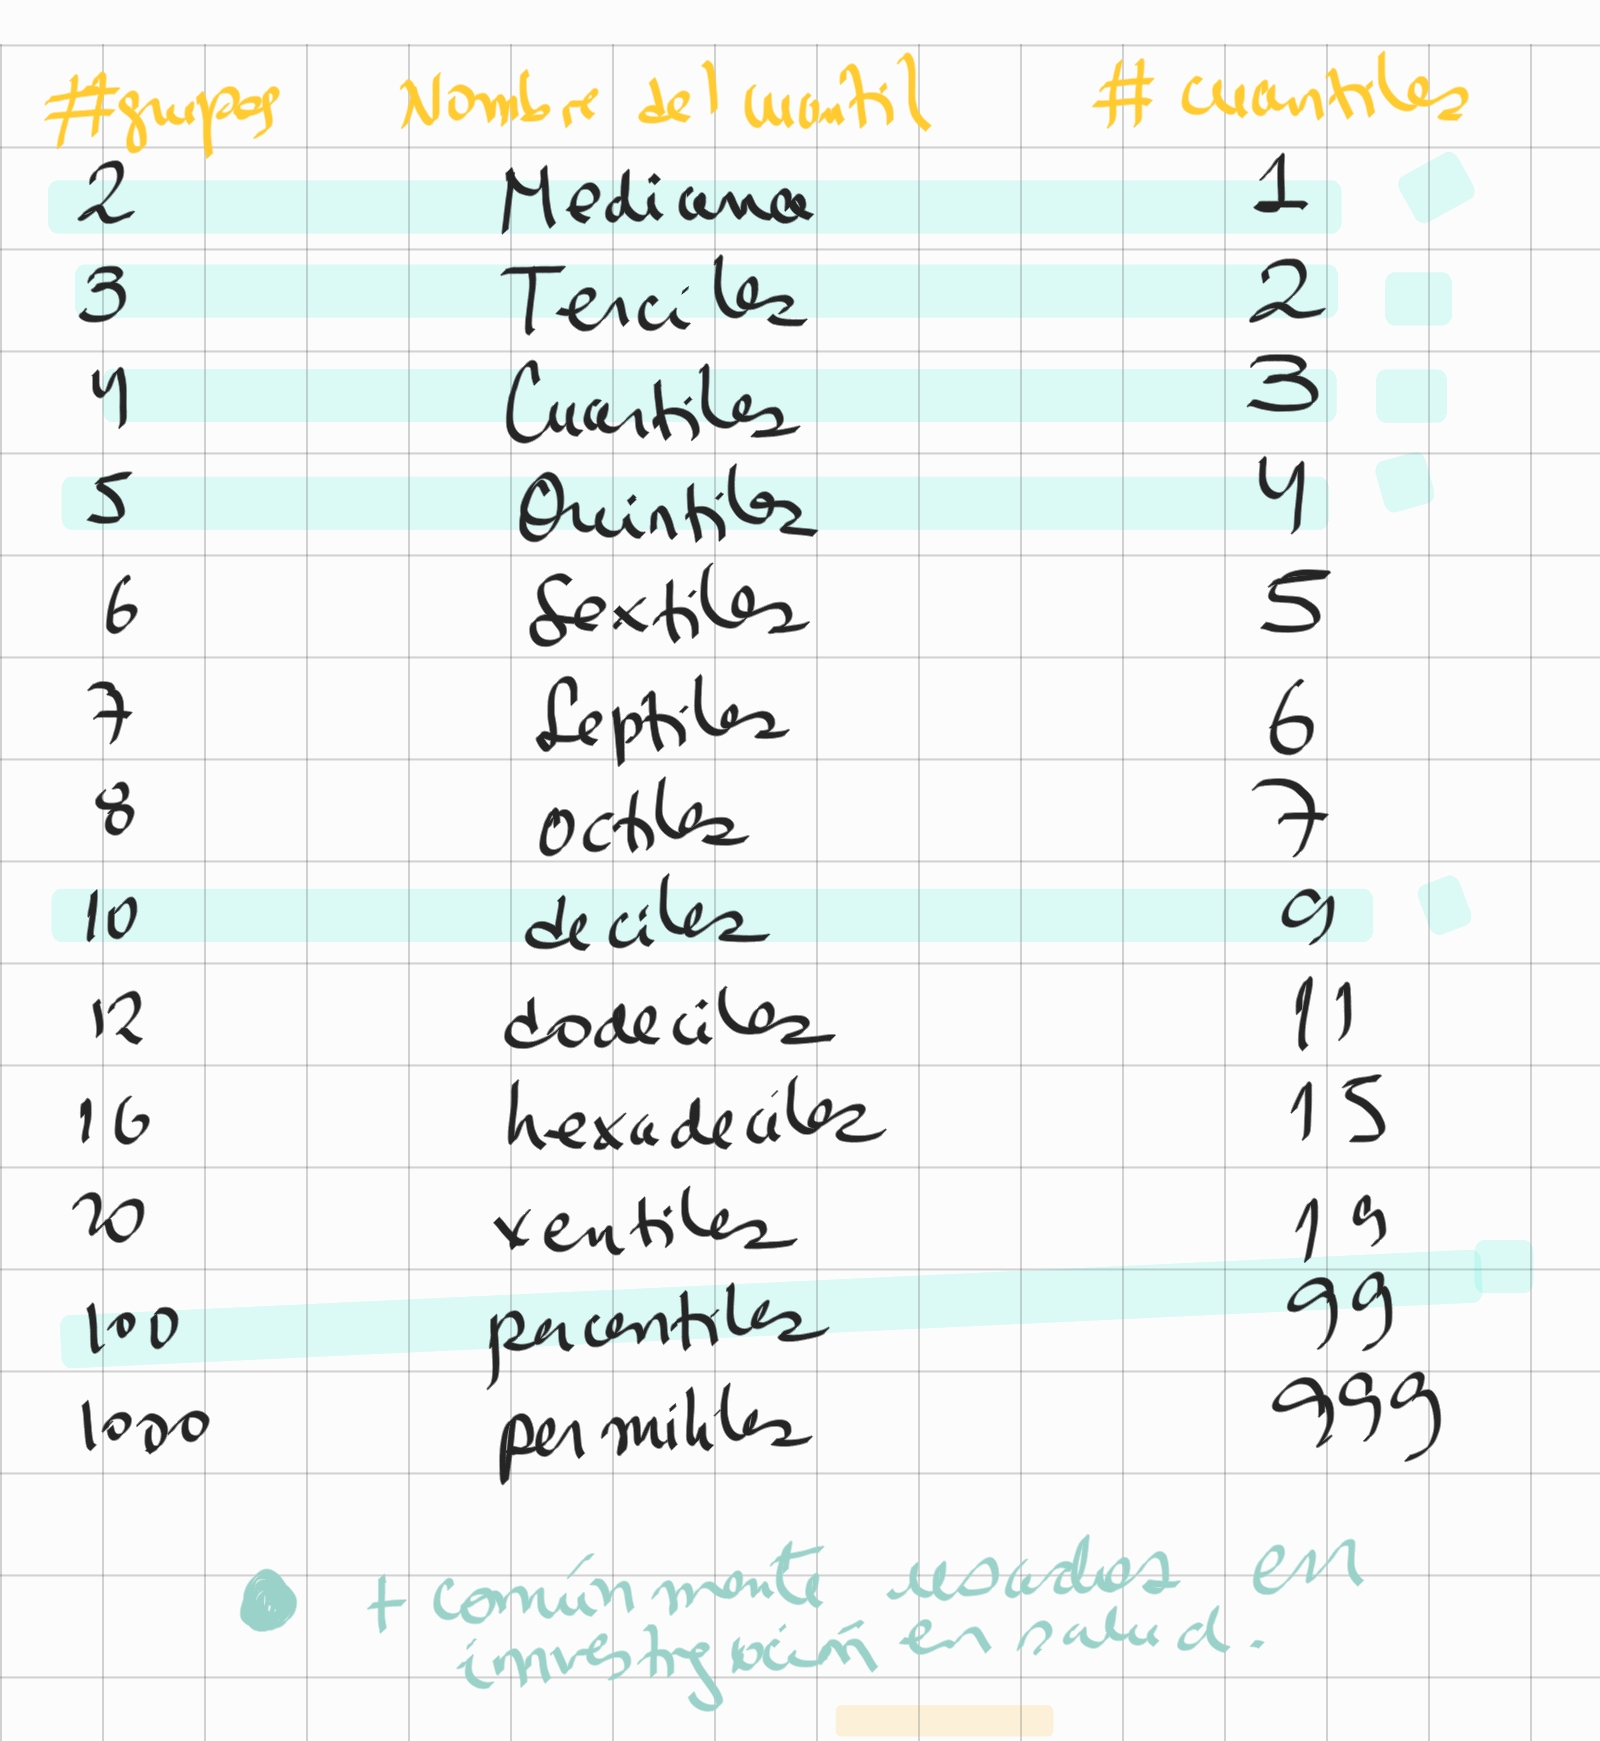 #grupos Nombre del cuantil # cuantiles
2 Mediana 1
3 Terciles 2
4 Cuartiles 3
5 Quintiles 4
6 Sextiles 5
7 Septiles 6
8 octiles 7
10 deciles 9
12 dodeciles 11
16 hexadeciles 15
20 ventiles 19
100 percentiles 99
1000 permililes 999
+ comúnmente usados en
investigación en salud.